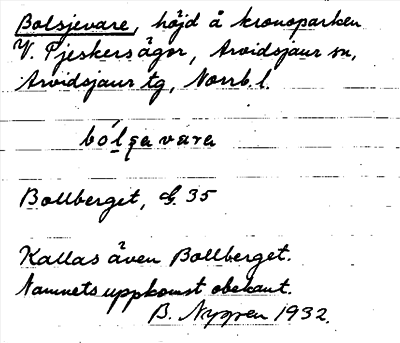 Bolsjevare, höjd å kronoparken
V. Pjeskers ägor, Arvidsjaur sn,
Arvidsjaur tg, Norrb. l.
Bollberget, 35
Kallas även Bollberget.
Namnets uppkomst obekant.
B. Nygren 1932.